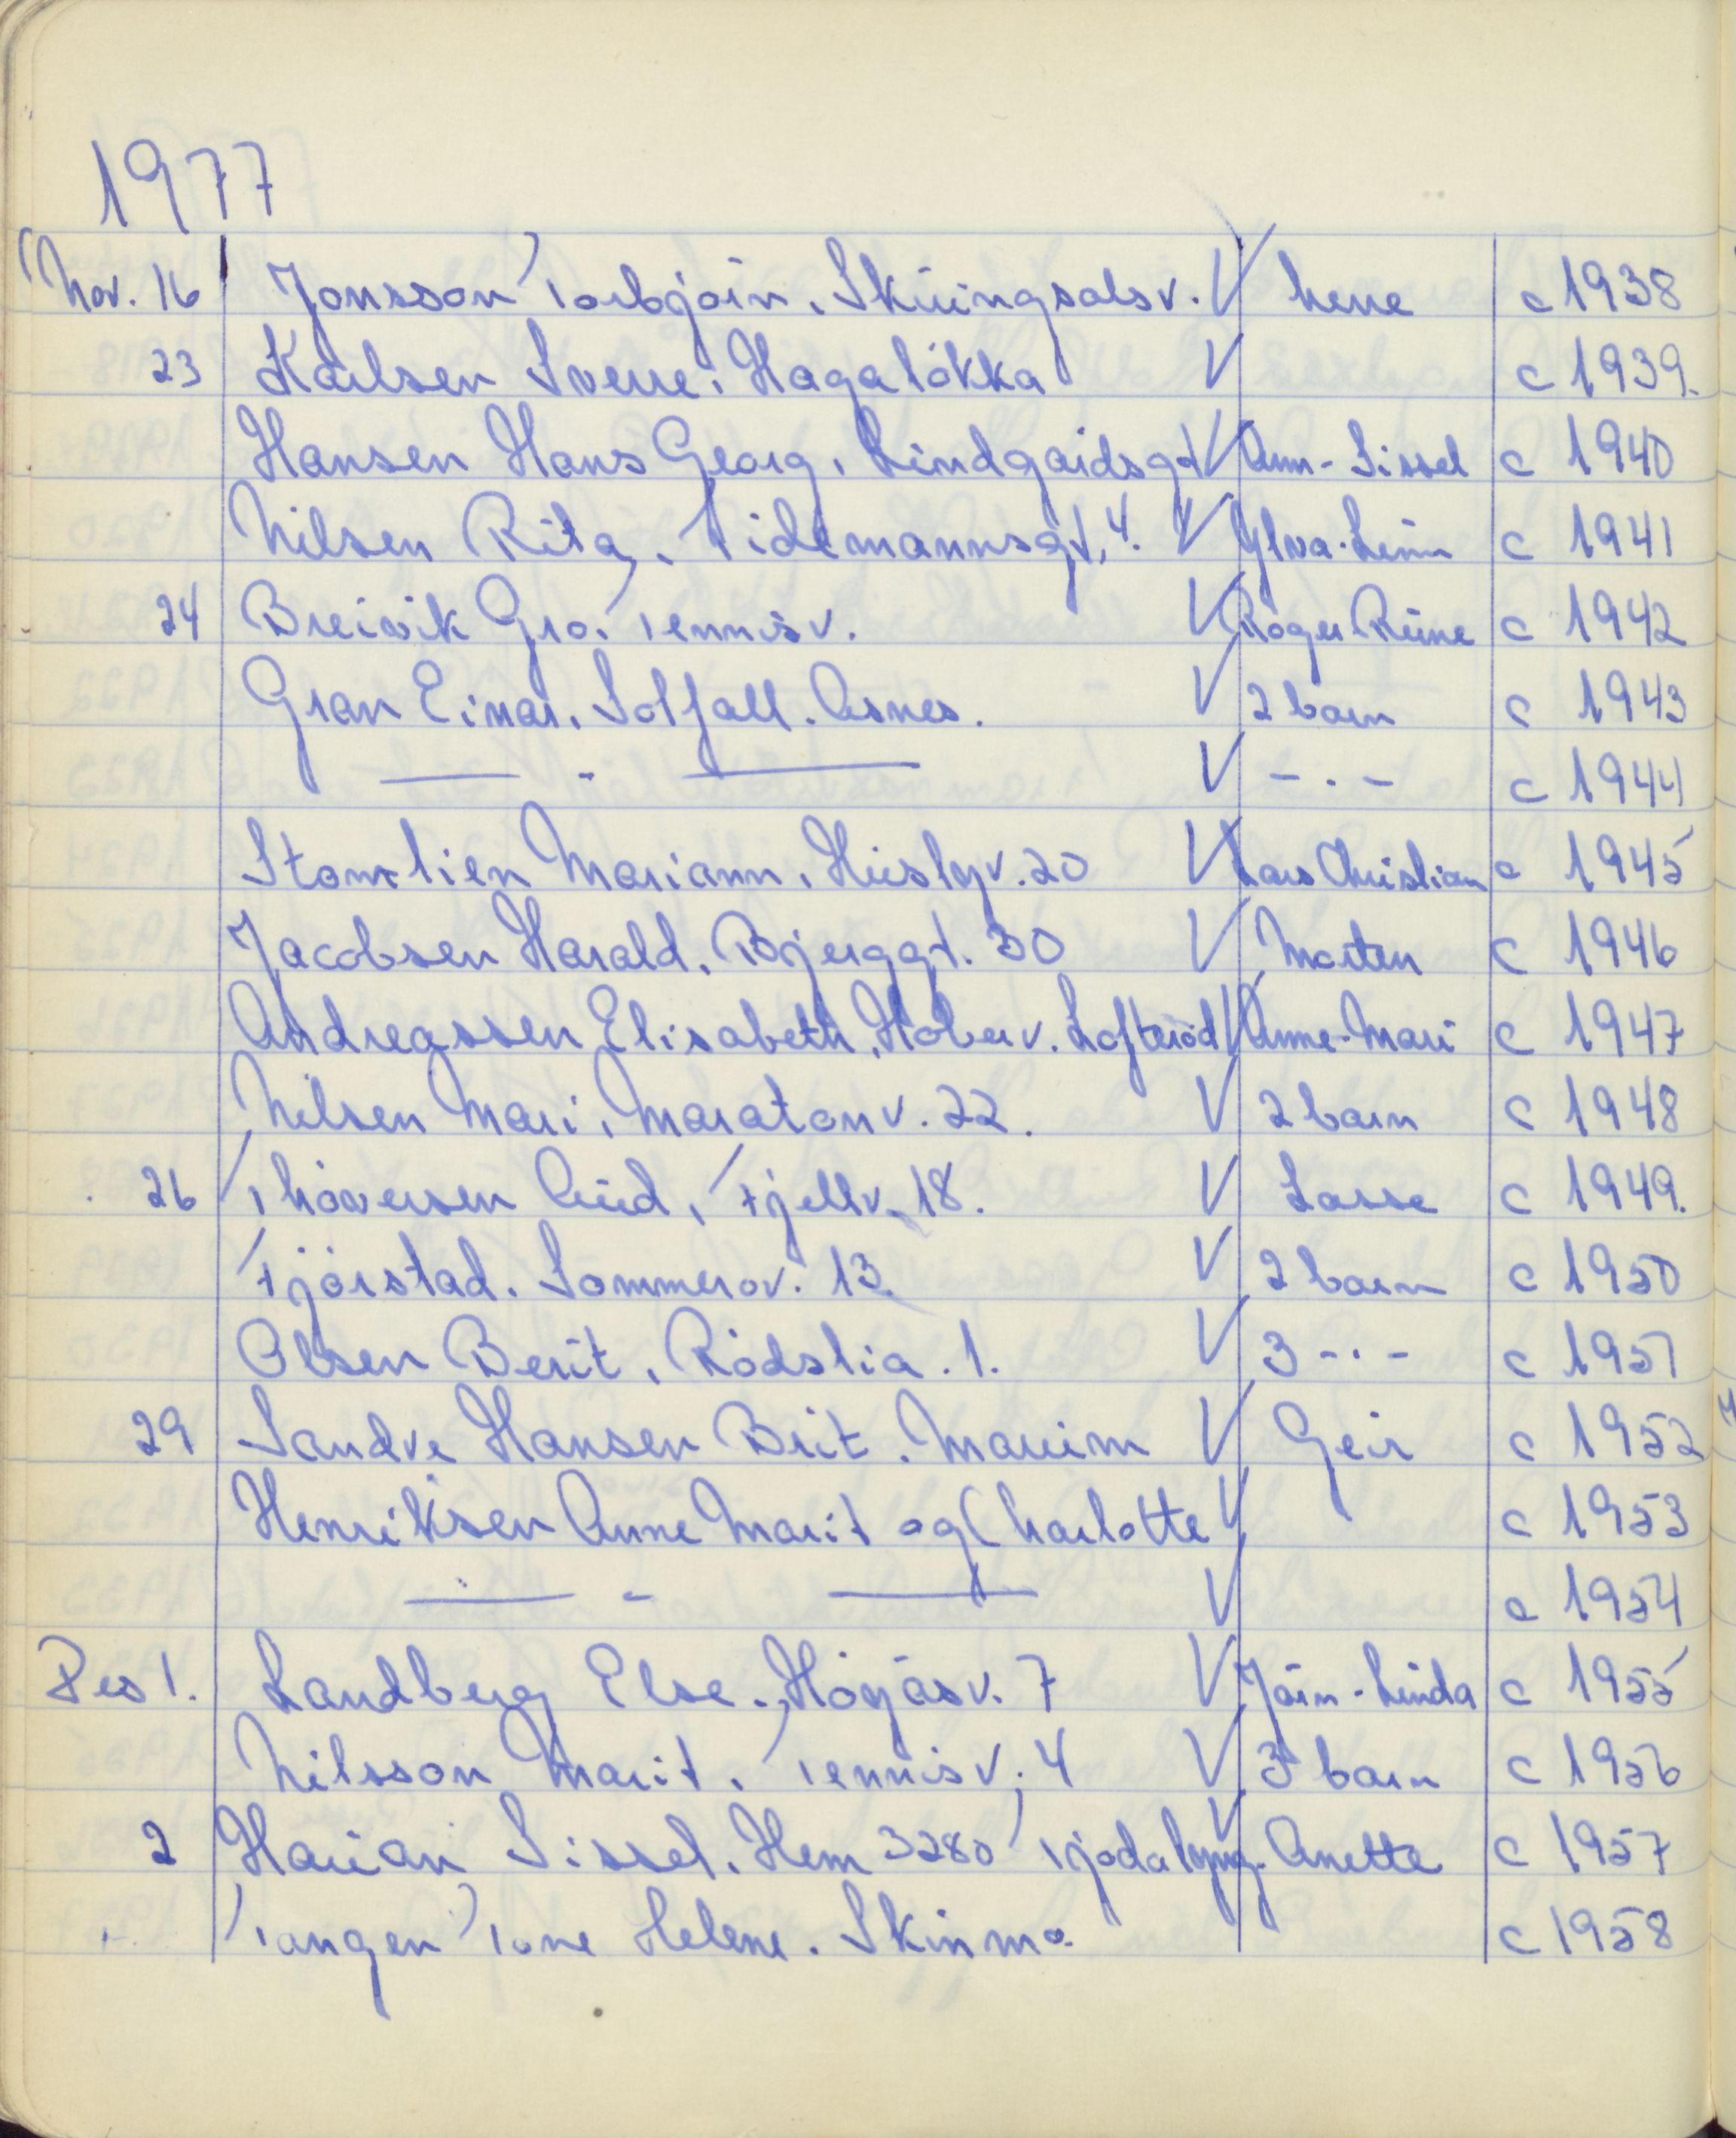 1977
Nov. 16 Jonsson Torbjørn. Skiringsalsv. V Lene c 1938
23 Karlsen Sverre. Hagaløkka V c 1939.
Hansen Hans Georg. Lindgaardsgt V Ann-Sissel c 1940
Nilsen Rita. Tidemannsgt. 4. V Ylva-Linn c 1941
24 Breivik Gro. Tennisv. V Roger Rune c 1942
Gran Einar. Solfall. Åsnes. V 2 barn c 1943
— - — V - . - c 1944
Mariann. Huslyv. 20 V Lars Christian c 1945
Jacobsen Harald. Bjerggt. 30 V Morten c 1946
Andreassen Elisabeth. Haberv. Lofterød V Anne-Mari c 1947
Nilsen Mari. Maratonv. 22. V 2 barn c 1948
26 Thoversen Aud. Fjellv. 18. V Lasse c 1949.
Fjørstad. Sommerov. 13. V 2 barn c 1950
Olsen Berit. Rødslia. 1. V 3 - . - c 1951
29 Sandve Hansen Brit. V Geir c 1952
Henriksen Anne Marit og Charlotte V c 1953
— - — V c 1954
Des 1. Landberg Else. Høyåsv. 7 V Jørn-Linda c 1955
Nilsson Marit. Tennisv. 4 V 3 barn c 1956
2 Sissel. Hem 3280 Tjodalyng. V Anette c 1957
Tangen Tone Helene. Skinmo c 1958